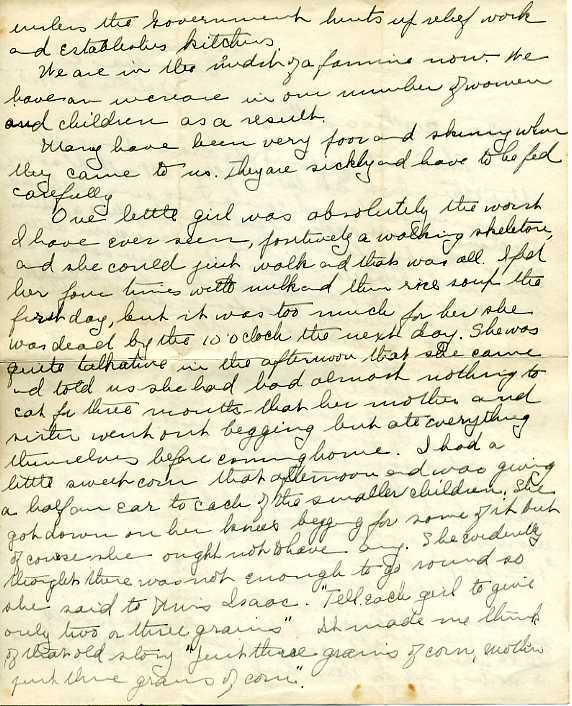 unless the Government hunts up relief work
and establishes kitchens
We are in the midst of a famine now. We
have an increase in our number of women
and children as a result.
Many have been very poor and skinny when
they came to us. They are sickly and have to be fed
carefully
One little girl was absolutely the worst
I have ever seen, positively a walking skeleton,
and she could just walk and that was all. I fed
her four times with milk and thin rice soup the
first day, but it was too much for her she
was dead by the 10 o'clock the next day. She was
quite talkative in the afternoon that she came
and told us she had had almost nothing to
eat for three months - that her mother and
sister went out begging but ate everything
themselves before coming home. I had a
little sweet corn that afternoon and was giving
a half an ear to each of the smaller children. She
got down on her knees begging for some of it but
of course she ought not to have any. She evidently
thought there was not enough to go round so
she said to Miss Isaac. "Tell each girl to give
only two or three grains" It made me think
of that old story "Just three grains of corn, mother
just three grains of corn".